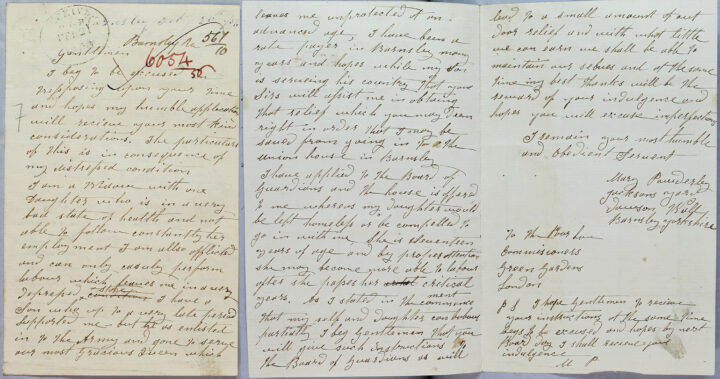 Barnsley No 567/10
Gentlemen
6054/50
I beg to be excused
trespassing upon your time
and hopes my humble application
will recieve your most kin
considerations. The particulars
of this is in consequence of
my distressed condition
I am a Widow with one
Daughter who is in a very
bad state of health and not
able to follow constantly her
employment I am allso afflicted
and can only casuly perform
labour which leaves me in a very
depressed I have a
Son who up to a very late period
supported me but as enlisted
in to the Army and gone to serve
our most Gracious Queen which
leaves me unprotected & on
advanced age, I have been a
rate payer in Barnsley many
years and hopes while my Son
is serveing his country that you
Sirs will assist me in obtaing
that relief which you may deem
right in order that I may be
saved from going in to the
union house in Barnsley
I have applied to the Board of
Guardians and the house is offered
to me whereas my daughter would
be left homeless or be compelled to
go in with me, She is seventeen
years of age and by proper attention
she may become more able to labour
after she passes her critical
years. As I stated in the commencement
that my self and daughter can labour
partially I beg Gentlemen that you
will give such instructions to
the Board of Guardians as will
lead to a small amount of out
door relief and with what little
we can earn we shall be able to
maintain our selves and at the same
time my best thanks will be the
reward of your indulgence and
hopes you will excuse imperfections
I remain your most humble
and obedient Servant
Mary
Jacksons yard
Barnsley Yorkshire
To the Poor Law
Commissioners
Green Gardens
London
P S I hope Gentlemen to recieve
your instructions at the same time
begs to be excused and hopes by next
Board day I shall recieve your
indulgence
M P